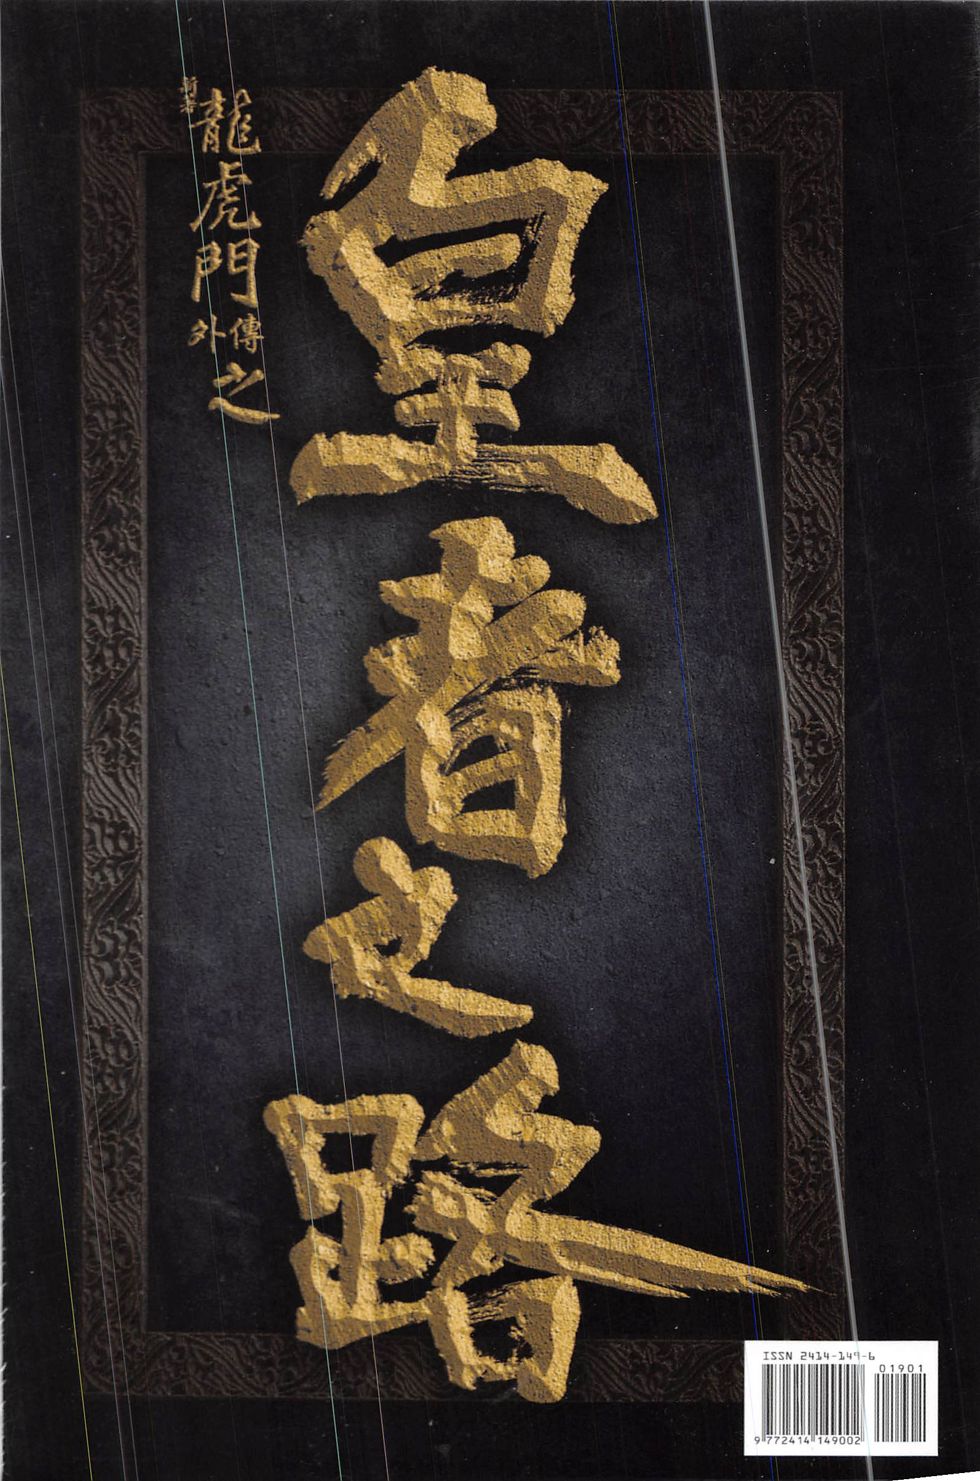 新著龍虎門外傳之
皇者之路
ISSN 2414-149-6
01901
9 772414 149002